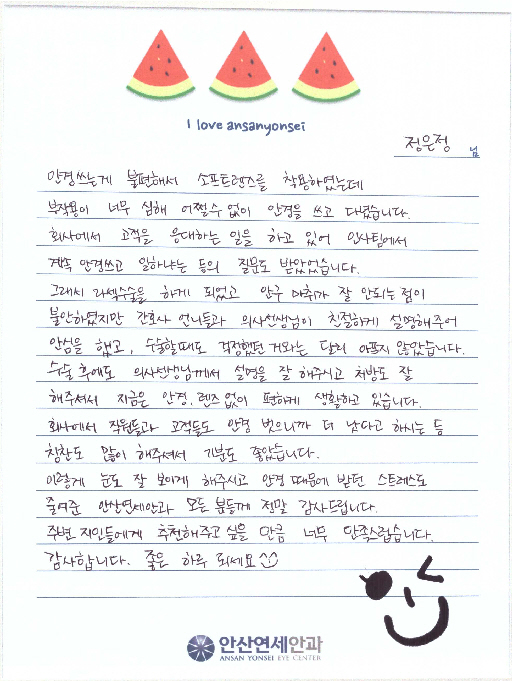 I love ansanyonsei
정은정 님
안경쓰는게 불편해서 소프트렌즈를 착용하였는데
부작용이 너무 심해 어쩔수 없이 안경을 쓰고 다녔습니다.
회사에서 고객을 응대하는 일을 하고 있어 인사팀에서
계속 안경쓰고 일하냐는 등의 질문도 받았었습니다.
그래서 라섹수술을 하게 되었고 안구 마취가 잘 안되는 점이
불안하였지만 간호사 언니들과 의사선생님이 친절하게 설명해주어
안심을 했고, 수술할때도 걱정했던 거와는 달리 아프지 않았습니다.
수술 후에도 의사선생님께서 설명을 잘 해주시고 처방도 잘
해주셔서 지금은 안경, 렌즈 없이 편하게 생활하고 있습니다.
회사에서 직원들과 고객들도 안경 벗으니까 더 낫다고 하시는 등
칭찬도 많이 해주셔서 기분도 좋았습니다.
이렇게 눈도 잘 보이게 해주시고 안경 때문에 받던 스트레스도
줄여준 안산연세안과 모든 분들께 정말 감사드립니다.
주변 지인들에게 추천해주고 싶을 만큼 너무 만족스럽습니다.
감사합니다. 좋은 하루 되세요
안산연세안과
ANSAN YONSEI EYE CENTER